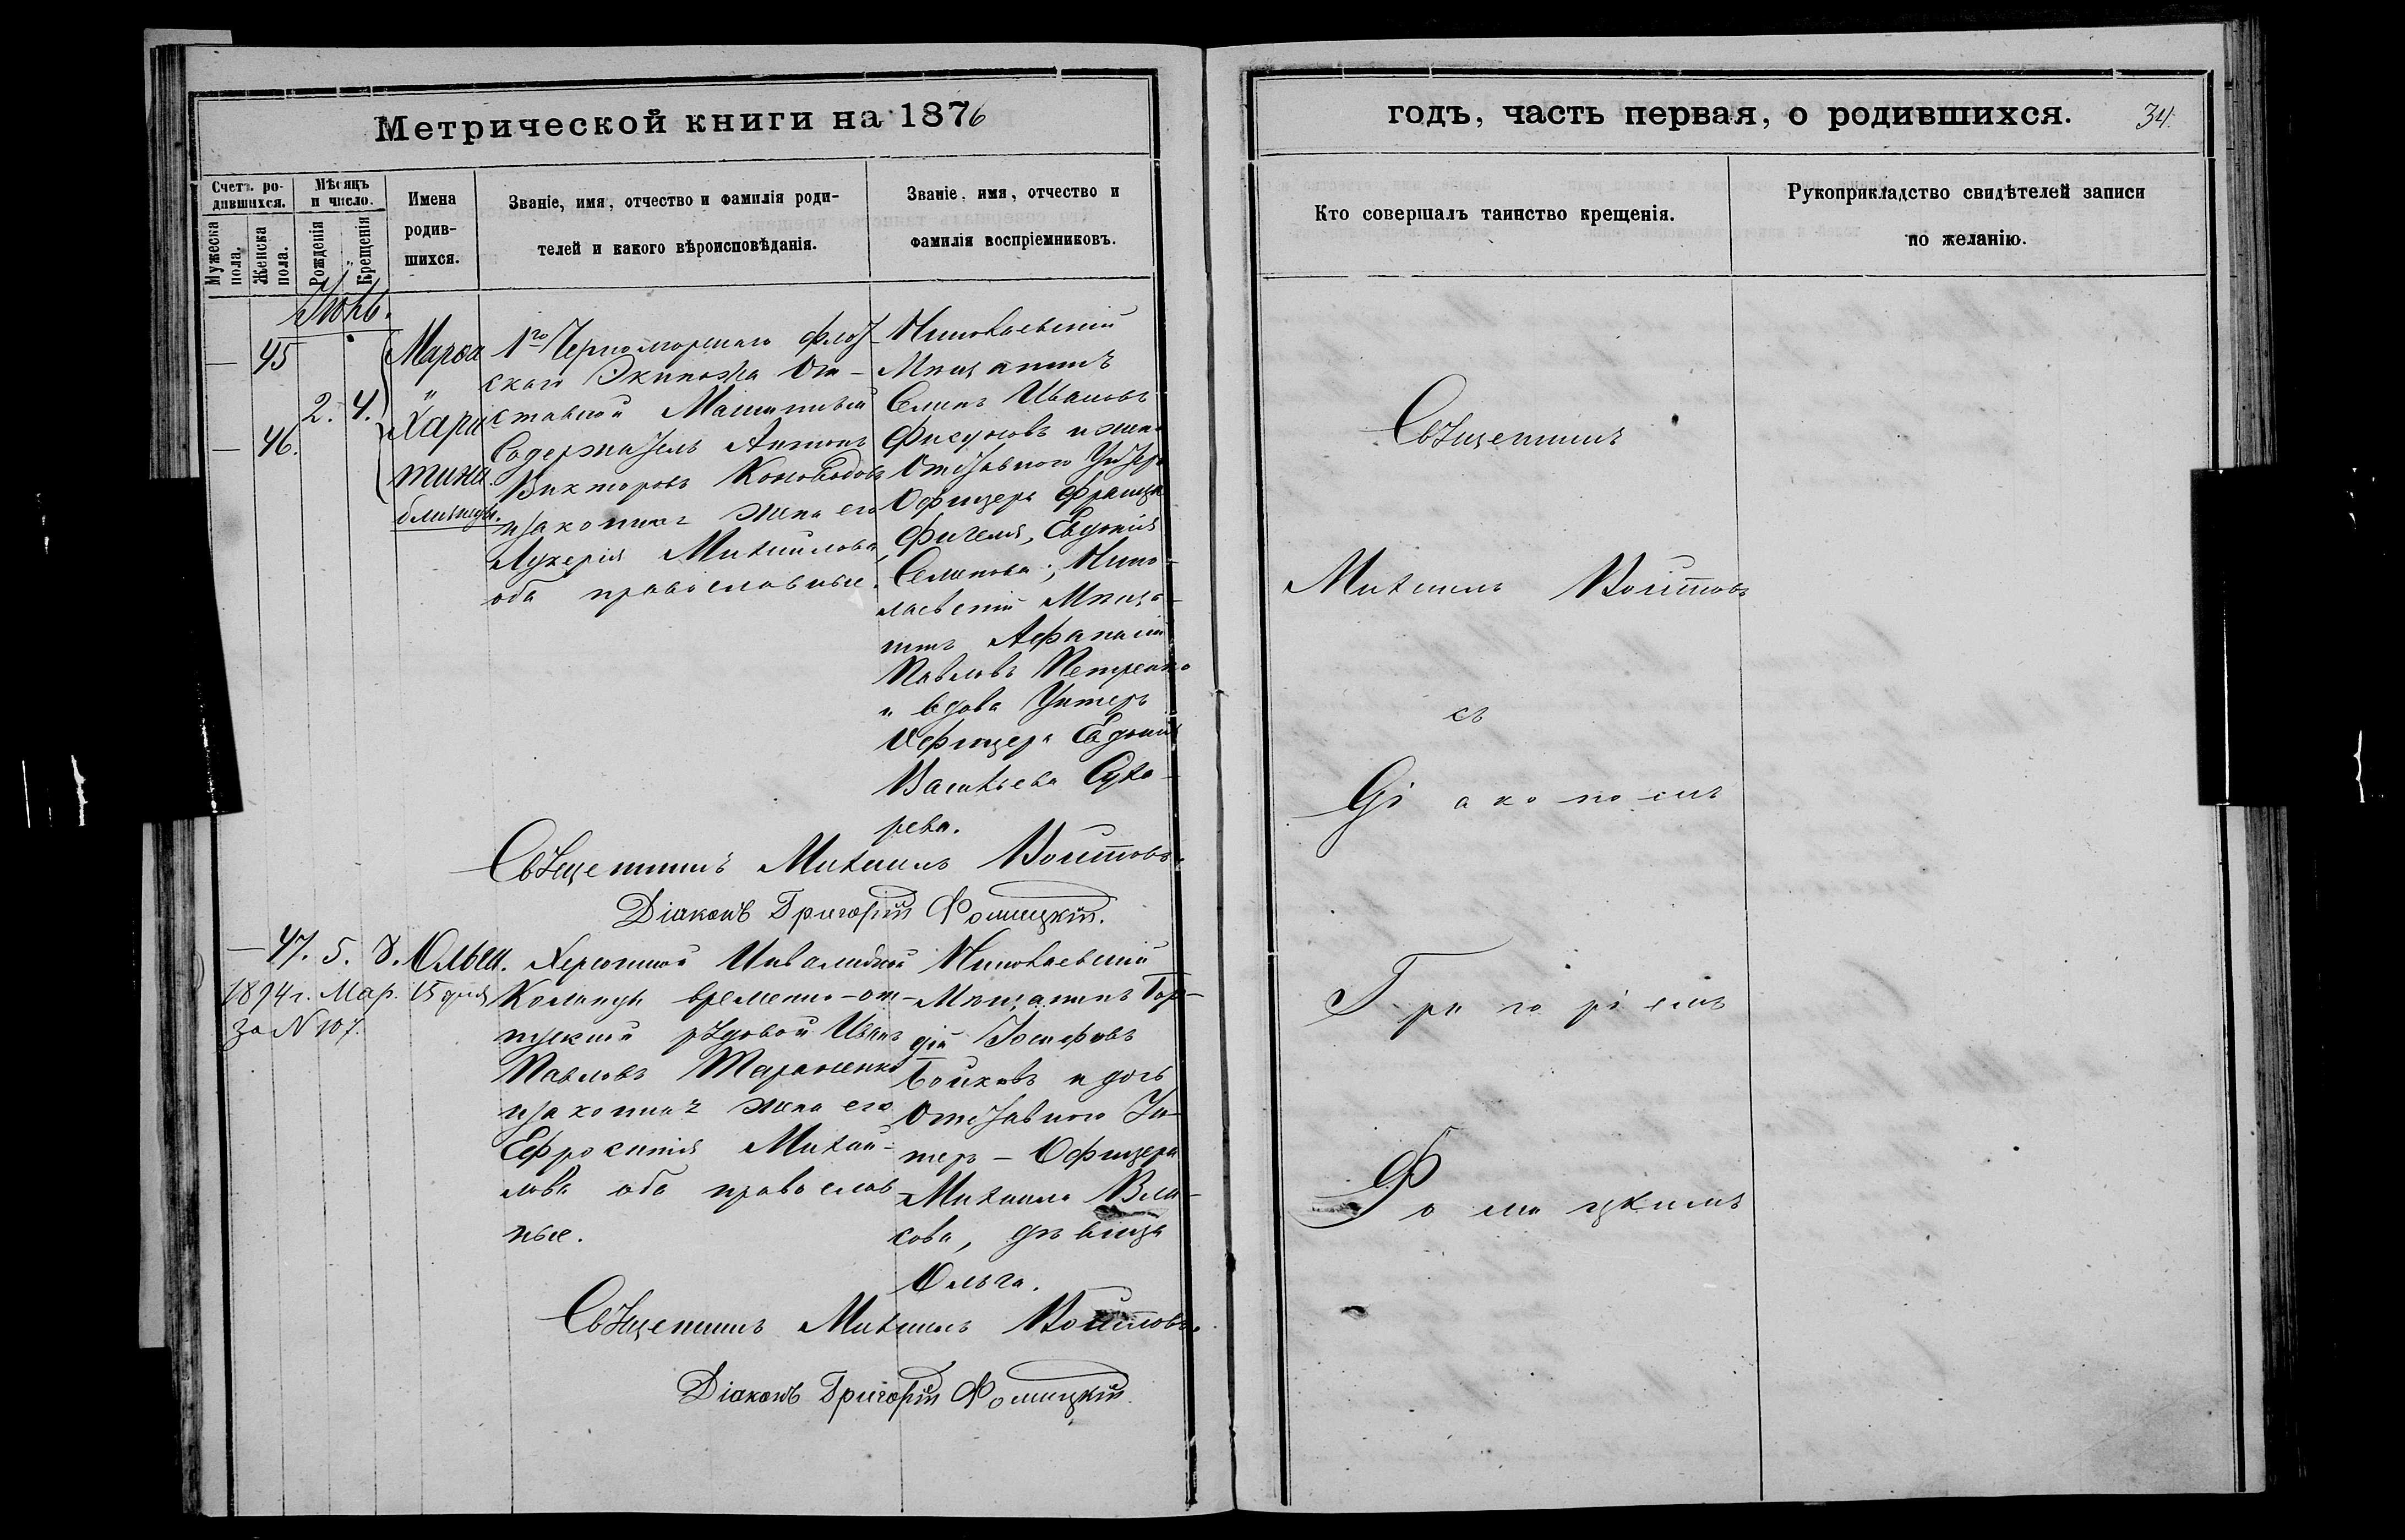 Метрической книги на 1876
годъ, часть первая, о родившихся.
34.
Счетъ ро-
дившихся.
Мужеска
пола.
Женска
пола.
Мѣсяцъ
и число.
Рожденія
Крещенія
Имена
родив-
шихся.
Званіе, имя, отчество и фамилія роди-
телей и какого вѣроисповѣданія.
Званіе, имя, отчество и
фамилія воспріемниковъ.
Кто совершалъ таинство крещенія.
Рукоприкладство свидѣтелей записи
по желанію.
45
46.
2. 4.
Марѳа
"
Хари
тина.
близнецы.
1го Черноморскаго флот-
скаго Экипажа От-
ставной
Содержатель Антонъ
Викторовъ Коноводовъ
и законная жена его
Лукерія Михаилова,
оба православные.
Николаевскій
Мѣщанинъ
Ивановъ
и жена
Отставного Унтеръ
Офицера
Евдокія
Семенова; Нико-
лаевскій Мѣща-
нинъ Афанасій
Павловъ Петренко
и вдова Унтеръ
Офицера Евдокія
Васильева Суха-
рева.
Священникъ Михаилъ Воитовъ.
Діаконъ Григорій Фомицкій.
47. 5. 8. Ольга.
1894 г. Мар. 15 дня
За N 107.
Херсонской Инвалидной
Команды временно-от-
пускной рядовой Иванъ
Павловъ Тараненко
и законная жена его
Ефросинія Михаи-
лова оба православ
ные.
Николаевскій
Мѣщанинъ Гор-
дій Іосифовъ
Бойковъ и дочь
Отставного Ун-
теръ-Офицера
Михаила Вла-
сова, дѣвица
Ольга.
Священникъ Михаилъ Воитовъ.
Діаконъ Григорій Фомицкій.
Священникъ
Михаилъ Воитовъ
съ
Діакономъ
Григоріемъ
Фомицкимъ